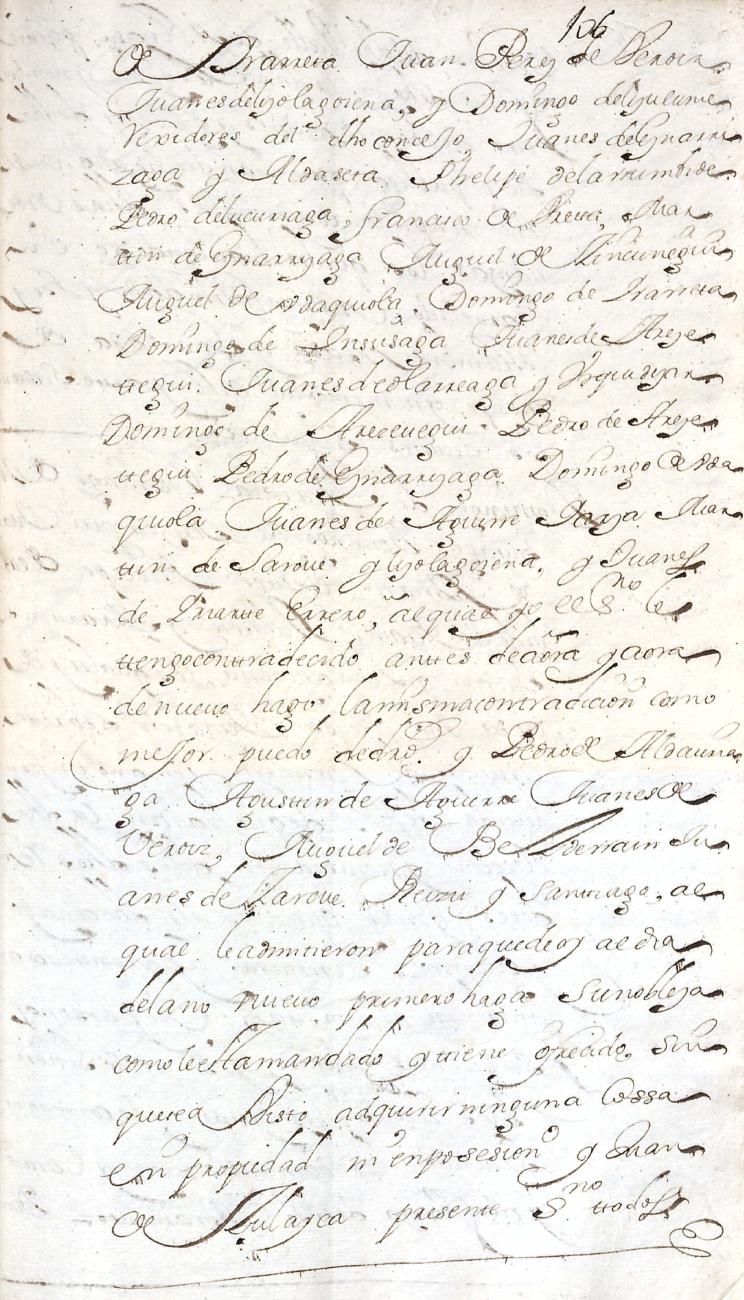 106
de Ybarreta Juan Perez de Veroiz
Juanes de liçolagoiena, y Domingo de liçueume
Vexidores del dho conceJo, Juanes de Gnarri
zaga y Aldaseta Phelipe de larrumbide
Pedro de lucuriaga, francisco de Yrieta, Mar
ttin de Gnarryaga Miguel de
Miguel de odaquiola, Domingo de Irarreta
Domingo de Insusaga Juanes de Areje
ttegui. Juanes de olarreaga y
Domingo de Arecevegui Pedro de Areje
ttegui Pedro de Gnarryaga Domingo de oda
quiola Juanes de Aguirre Mar
ttin de Sarove y liçolagoiena, y Juanes
de Yriartte Errero, al qual yo el Sno le
ttengo conttradecido anttes de aora y aora
de nuevo hago la misma contradicion como
meJor puedo de drõ. y Pedro de Aldauna
ga Agusttin de Aguirre Juanes de
Veroiz, Miguel de Belderrain Ju
anes de Zarove Reizu y Santtiago, al
qual le admitieron para que de oy al dia
del ano nuevo primero haga su nobleza
como le estta mandado y ttiene ofrecido, sin
que sea Visto adquirir ninguna Cossa
en propiedad ni en posesion y Juan
de presentte Sno ttodos